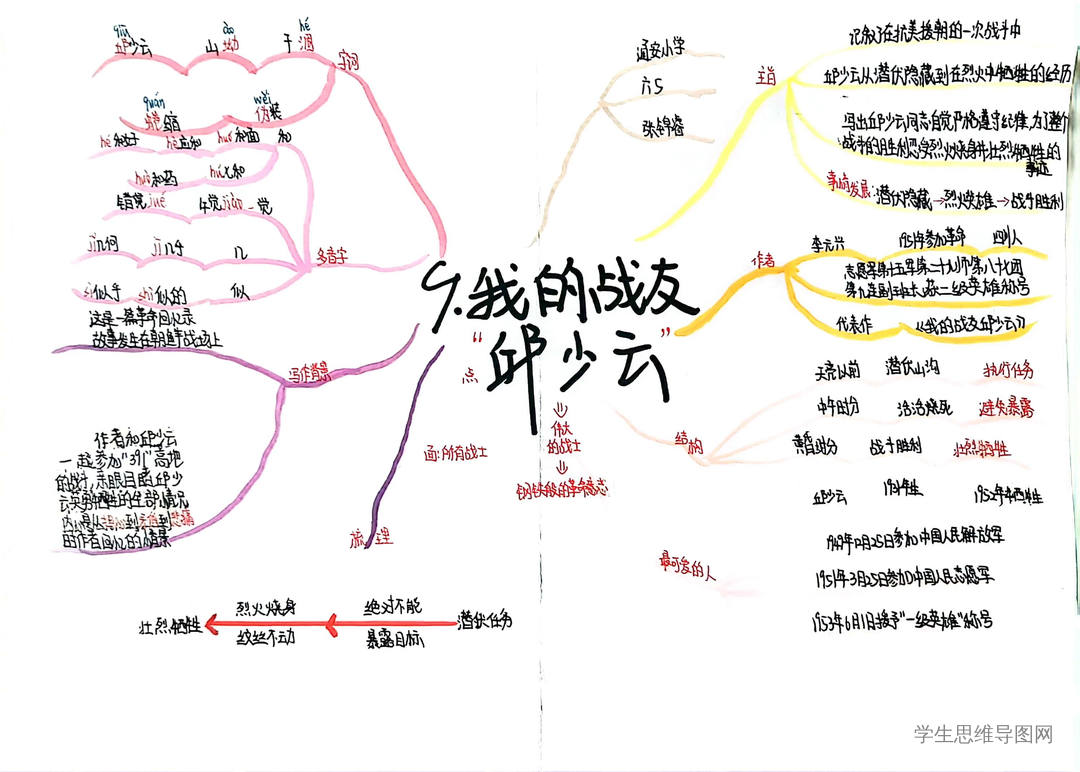 9.我的战友
"邱少云"
字词
qiū
邱少云
ào
山坳
hé
干涸
quán
蜷缩
wěi
伪装
多音字
hé和平
huó和面
和
huò和药
错觉jué
午觉jiào
觉
jǐ几何
jī几乎
几
sì似乎
shì似的
似
写作背景
这是一篇青年回忆录
故事发生在朝鲜战场上
作者和邱少云
一起参加"391"高地
的战斗,亲眼目睹邱少
云英勇牺牲的全部情况
的作者回忆的情景
梳理
点
面:所有战士
伟大
的战士
钢铁般的革命意志
潜伏任务
绝对不能
暴露目标
烈火烧身
纹丝不动
壮烈牺牲
通安小学
六5
主旨
记叙了在抗美援朝的一次战斗中
邱少云从潜伏隐藏到在烈火中牺牲的经历
写出邱少云同志自觉严格遵守纪律,为了整个
战斗的胜利忍受烈火烧身并壮烈牺牲的
事迹
事情发展:潜伏隐藏→烈火英雄→战斗胜利
作者
李元兴
1951年参加革命
四川人
志愿军第十五军第二十九师第八十七团
第九连副班长,获二级英雄称号
代表作
《我的战友邱少云》
结构
天亮以前
潜伏山沟
执行任务
中午时分
活活烧死
避免暴露
黄昏时分
战斗胜利
壮烈牺牲
最可爱的人
邱少云
1952年牺牲
1949年12月25日参加中国人民解放军
1951年3月25日参加中国人民志愿军
1953年6月1日授予"一级英雄"称号
学生思维导图网